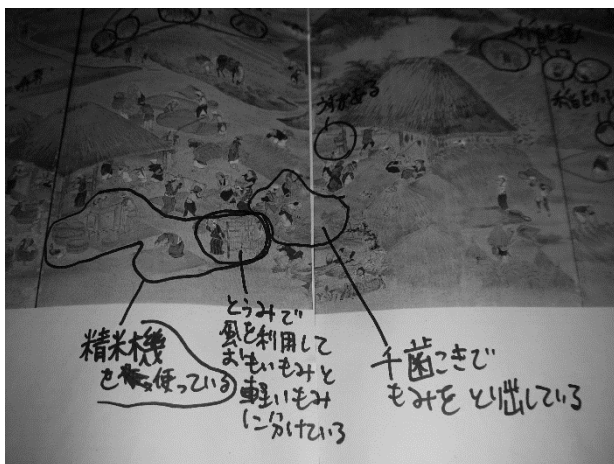 精米機
を使っている
とうみで
風を利用して
おもいもみと
軽いもみ
に分けている
千歯こきで
もみをとり出している
うすがある